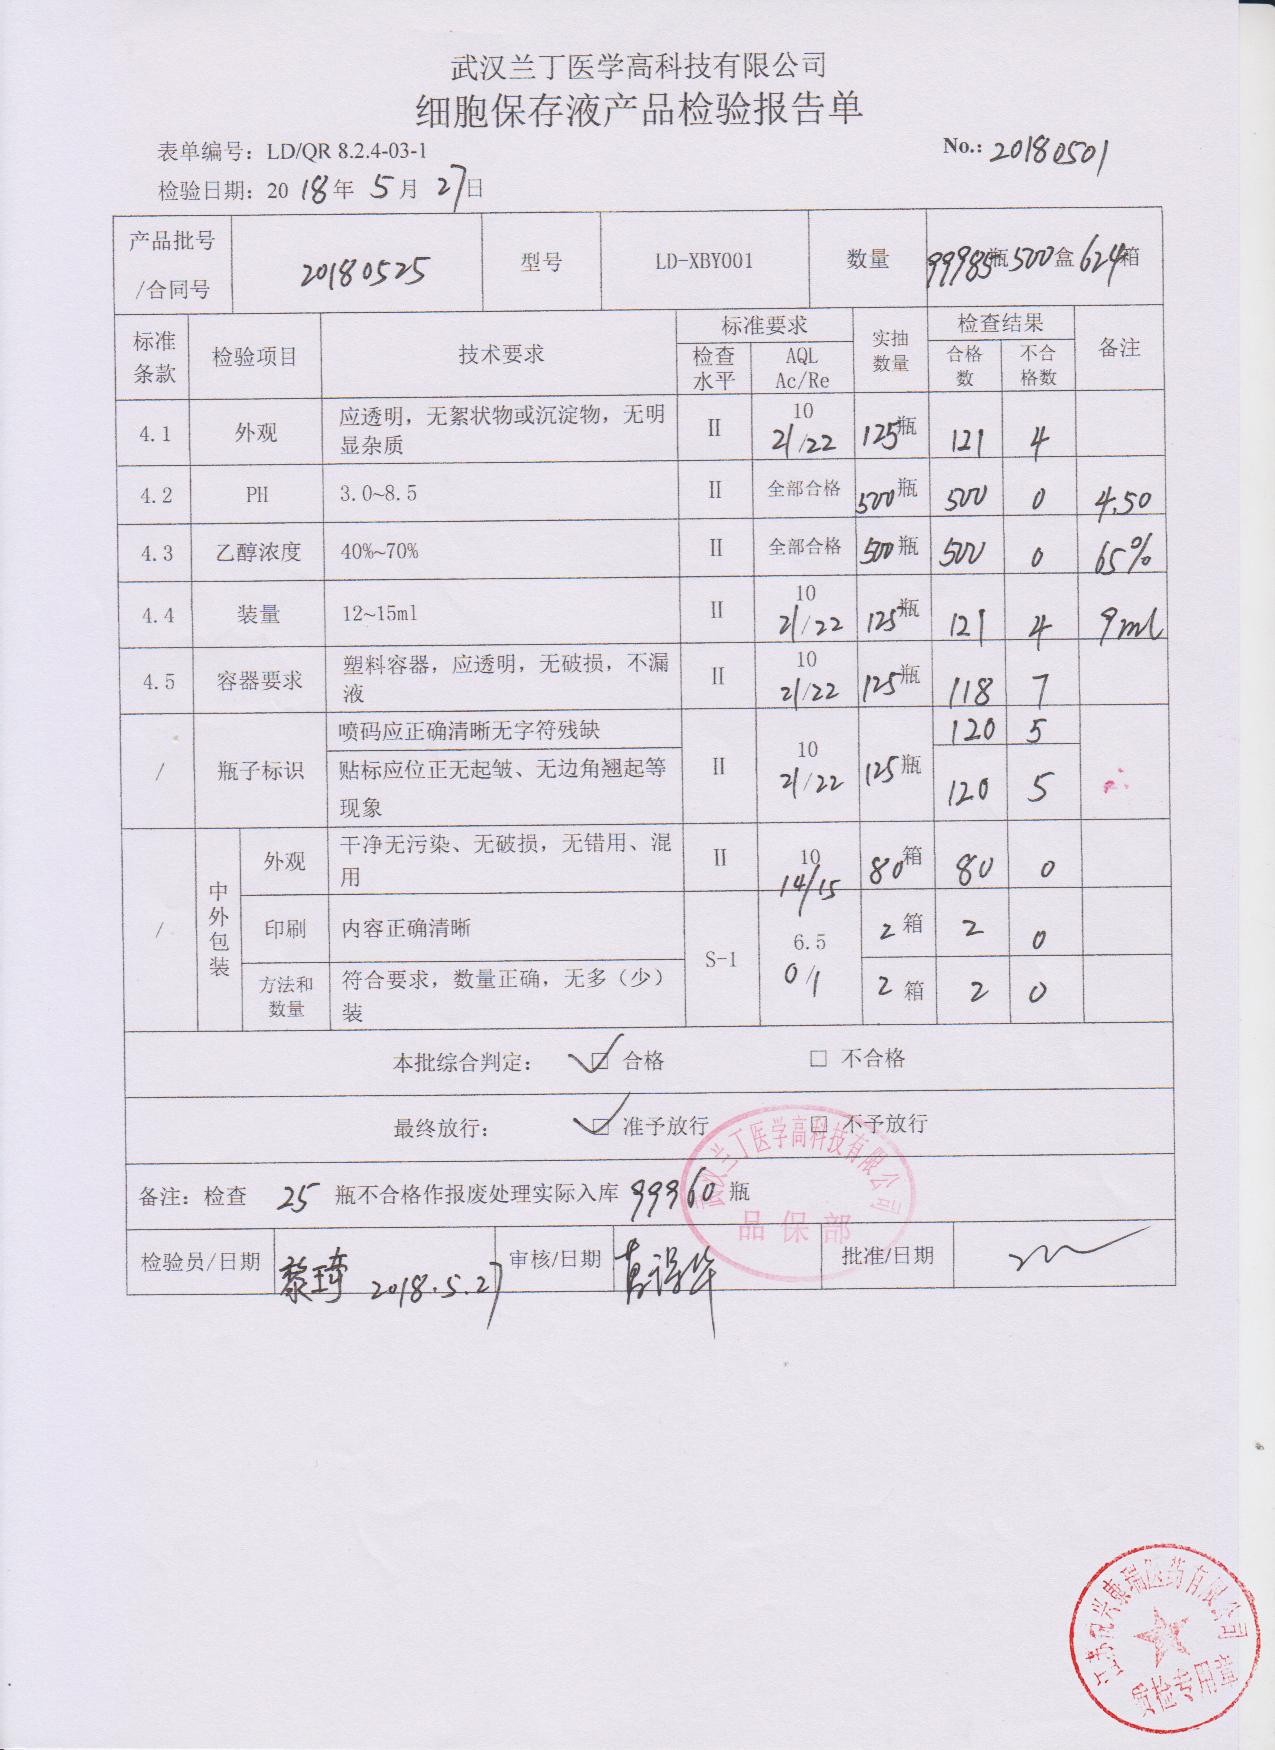 武汉兰丁医学高科技有限公司
细胞保存液产品检验报告单
表单编号：LD/QR 8.2.4-03-1
No.: 20180501
检验日期：2018年 5月 27日
产品批号/合同号 20180525 型号 LD-XBY001 数量 99985瓶500盒624箱
标准条款 检验项目 技术要求 标准要求 实抽数量 检查结果 备注
检查水平 AQL Ac/Re 合格数 不合格数
4.1 外观 应透明，无絮状物或沉淀物，无明显杂质 II 10 21/22 125瓶 121 4
4.2 PH 3.0~8.5 II 全部合格 500瓶 500 0 4.50
4.3 乙醇浓度 40%~70% II 全部合格 500瓶 500 0 65%
4.4 装量 12~15ml II 10 21/22 125瓶 121 4 9ml
4.5 容器要求 塑料容器，应透明，无破损，不漏液 II 10 21/22 125瓶 118 7
/ 瓶子标识 喷码应正确清晰无字符残缺 II 10 21/22 125瓶 120 5
贴标应位正无起皱、无边角翘起等现象 120 5
/ 中外包装 外观 干净无污染、无破损，无错用、混用 II 10 14/15 80箱 80 0
印刷 内容正确清晰 S-1 6.5 0/1 2箱 2 0
方法和数量 符合要求，数量正确，无多（少）装 2箱 2 0
本批综合判定： ✓□ 合格 □ 不合格
最终放行： ✓□ 准予放行 □ 不予放行
备注：检查 25 瓶不合格作报废处理实际入库 99960 瓶
武汉兰丁医学高科技有限公司
品保部
检验员/日期 黎琦 2018.5.27 审核/日期 批准/日期
医药有限公司
质检专用章